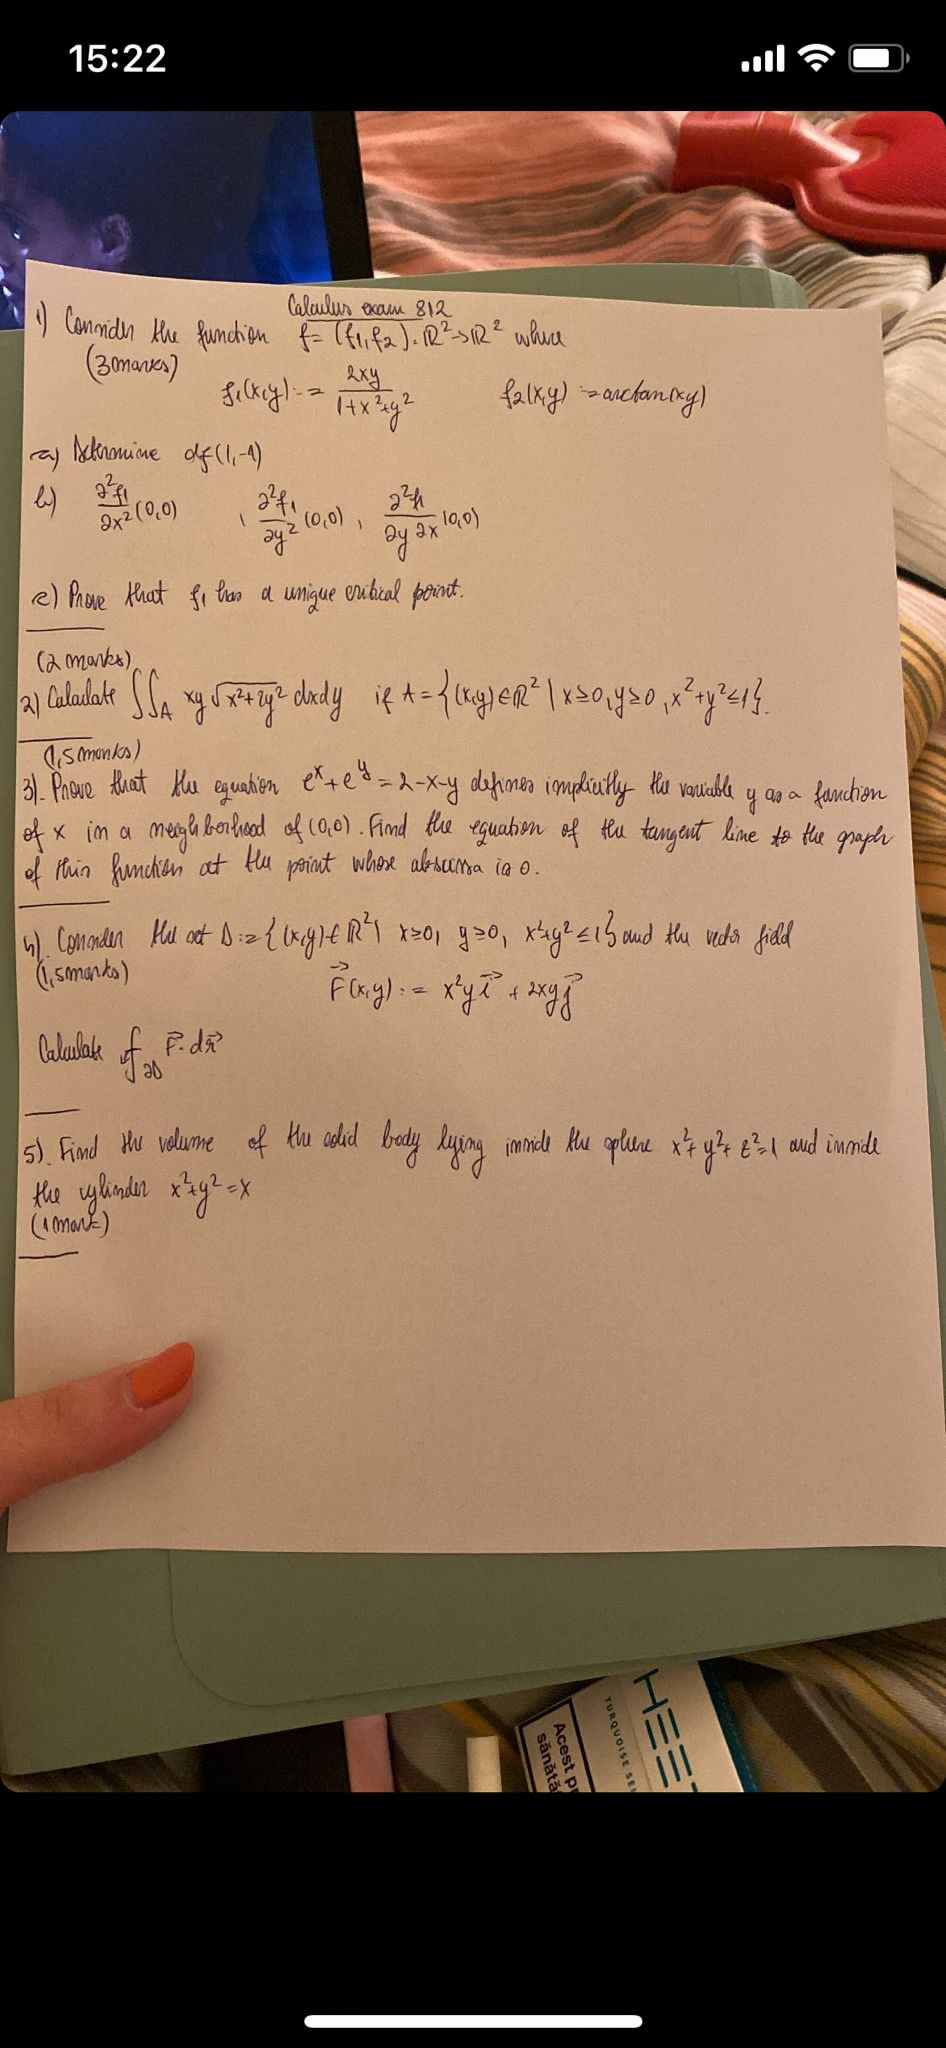 15:22
Calculus exam 812
1) Consider the function f = (f1, f2): ℝ²→ℝ² where
(3 marks)
f1(x,y) := 2xy / 1+x²+y²    f2(x,y) := arctan(xy)
a) Determine df(1,-1)
b) ∂²f1/∂x² (0,0), ∂²f1/∂y² (0,0), ∂²f1/∂y∂x (0,0)
c) Prove that f1 has a unique critical point.
(2 marks)
2) Calculate ∬A xy √x²+2y² dxdy if A = {(x,y) ∈ ℝ² | x≥0, y≥0, x²+y²≤1}.
(1,5 marks)
3). Prove that the equation e^x + e^y = 2-x-y defines implicitly the variable y as a function
of x in a neighborhood of (0,0). Find the equation of the tangent line to the graph
of this function at the point whose abscissa is 0.
4). Consider the set D := {(x,y) ∈ ℝ² | x≥0, y≥0, x²+y² ≤1} and the vector field
(1,5 marks)
F⃗(x,y) := x²y i⃗ + 2xy j⃗
Calculate ∮∂D F⃗ · dr⃗
5). Find the volume of the solid body lying inside the sphere x²+y²+z²=1 and inside
the cylinder x²+y²=x
(1 mark)
Acest
sănăta
TURQUOISE SE
HEE